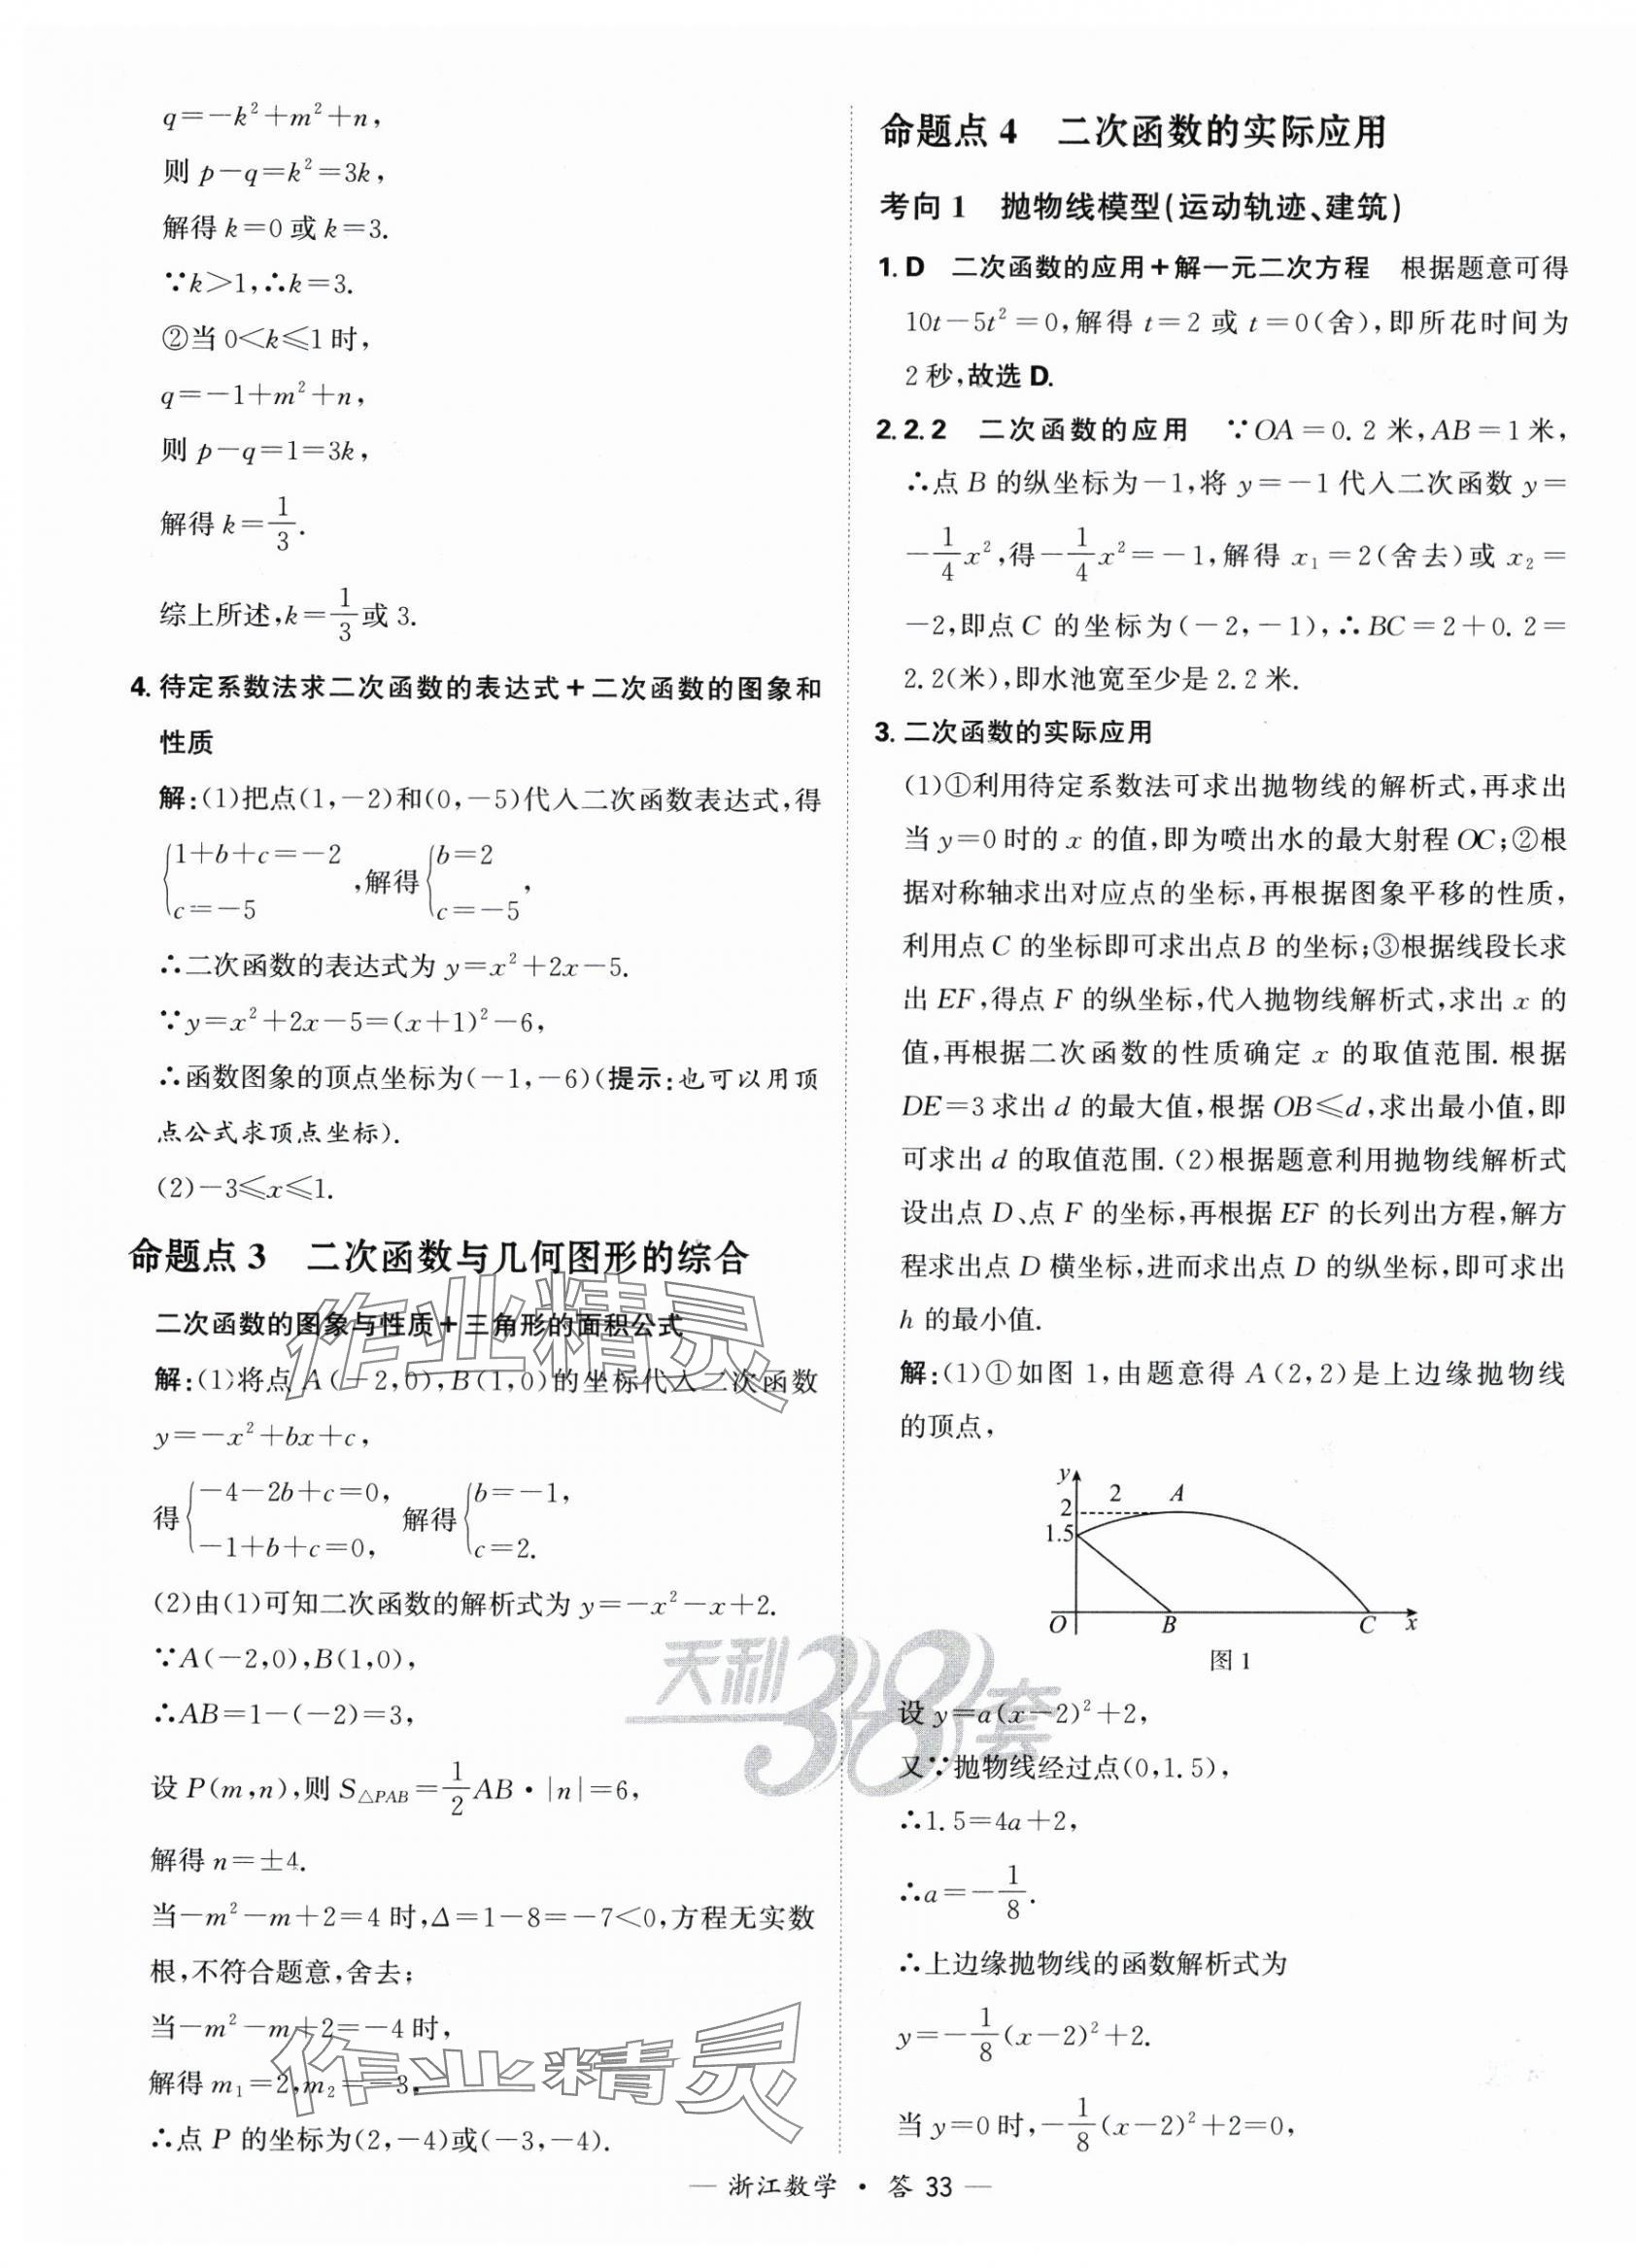 q=-k²+m²+n,
则 p-q=k²=3k,
解得 k=0 或 k=3.
∵k>1,∴k=3.
②当 0<k≤1 时,
q=-1+m²+n,
则 p-q=1=3k,
解得 k=1/3.
综上所述,k=1/3或 3.
4. 待定系数法求二次函数的表达式+二次函数的图象和
性质
解:(1)把点(1,-2)和(0,-5)代入二次函数表达式,得
{1+b+c=-2
c=-5
,解得
{b=2
c=-5
,
∴二次函数的表达式为 y=x²+2x-5.
∵y=x²+2x-5=(x+1)²-6,
∴函数图象的顶点坐标为(-1,-6)(提示:也可以用顶
点公式求顶点坐标).
(2)-3≤x≤1.
命题点 3 二次函数与几何图形的综合
二次函数的图象与性质+三角形的面积公式
解:(1)将点 A(-2,0),B(1,0)的坐标代入二次函数
y=-x²+bx+c,
得
{-4-2b+c=0,
-1+b+c=0,
解得
{b=-1,
c=2.
(2)由(1)可知二次函数的解析式为 y=-x²-x+2.
∵A(-2,0),B(1,0),
∴AB=1-(-2)=3,
设 P(m,n),则 S△PAB=1/2AB·|n|=6,
解得 n=±4.
当-m²-m+2=4 时,Δ=1-8=-7<0,方程无实数
根,不符合题意,舍去;
当-m²-m+2=-4 时,
解得 m₁=2,m₂=-3,
∴点 P 的坐标为(2,-4)或(-3,-4).
命题点 4 二次函数的实际应用
考向 1 抛物线模型(运动轨迹、建筑)
1. D 二次函数的应用+解一元二次方程 根据题意可得
10t-5t²=0,解得 t=2 或 t=0(舍),即所花时间为
2 秒,故选 D.
2. 2.2 二次函数的应用 ∵OA=0.2 米,AB=1 米,
∴点 B 的纵坐标为-1,将 y=-1 代入二次函数 y=
-1/4x²,得-1/4x²=-1,解得 x₁=2(舍去)或 x₂=
-2,即点 C 的坐标为(-2,-1),∴BC=2+0.2=
2.2(米),即水池宽至少是 2.2 米.
3. 二次函数的实际应用
(1)①利用待定系数法可求出抛物线的解析式,再求出
当 y=0 时的 x 的值,即为喷出水的最大射程 OC;②根
据对称轴求出对应点的坐标,再根据图象平移的性质,
利用点 C 的坐标即可求出点 B 的坐标;③根据线段长求
出 EF,得点 F 的纵坐标,代入抛物线解析式,求出 x 的
值,再根据二次函数的性质确定 x 的取值范围. 根据
DE=3 求出 d 的最大值,根据 OB≤d,求出最小值,即
可求出 d 的取值范围. (2)根据题意利用抛物线解析式
设出点 D、点 F 的坐标,再根据 EF 的长列出方程,解方
程求出点 D 横坐标,进而求出点 D 的纵坐标,即可求出
h 的最小值.
解:(1)①如图 1,由题意得 A(2,2)是上边缘抛物线
的顶点,
y
2 2 A
1.5
O B C x
图 1
设 y=a(x-2)²+2,
又∵抛物线经过点(0,1.5),
∴1.5=4a+2,
∴a=-1/8.
∴上边缘抛物线的函数解析式为
y=-1/8(x-2)²+2.
当 y=0 时,-1/8(x-2)²+2=0,
作业精灵
天利38套
作业精灵
— 浙江数学 · 答 33 —